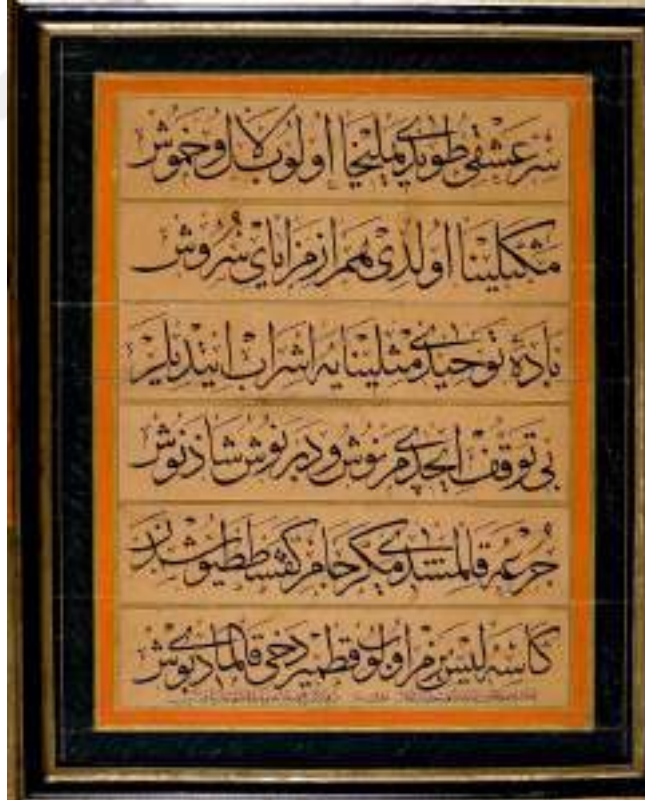 سر عشقی طویدی یملیخا اولوب لال و خموش
مکثلینا اولدی همراز مزایای سروش
بادهٔ توحیدی مثلینایه اشراب ایتدیلر
بی توقف ایچدی مرنوش و دبرنوش شاذنوش
جرعه قالمشدی مگر جام کفشططیوشدن
کاسه لیس بزم اولوب قطمیر دخی قالمادی بوش